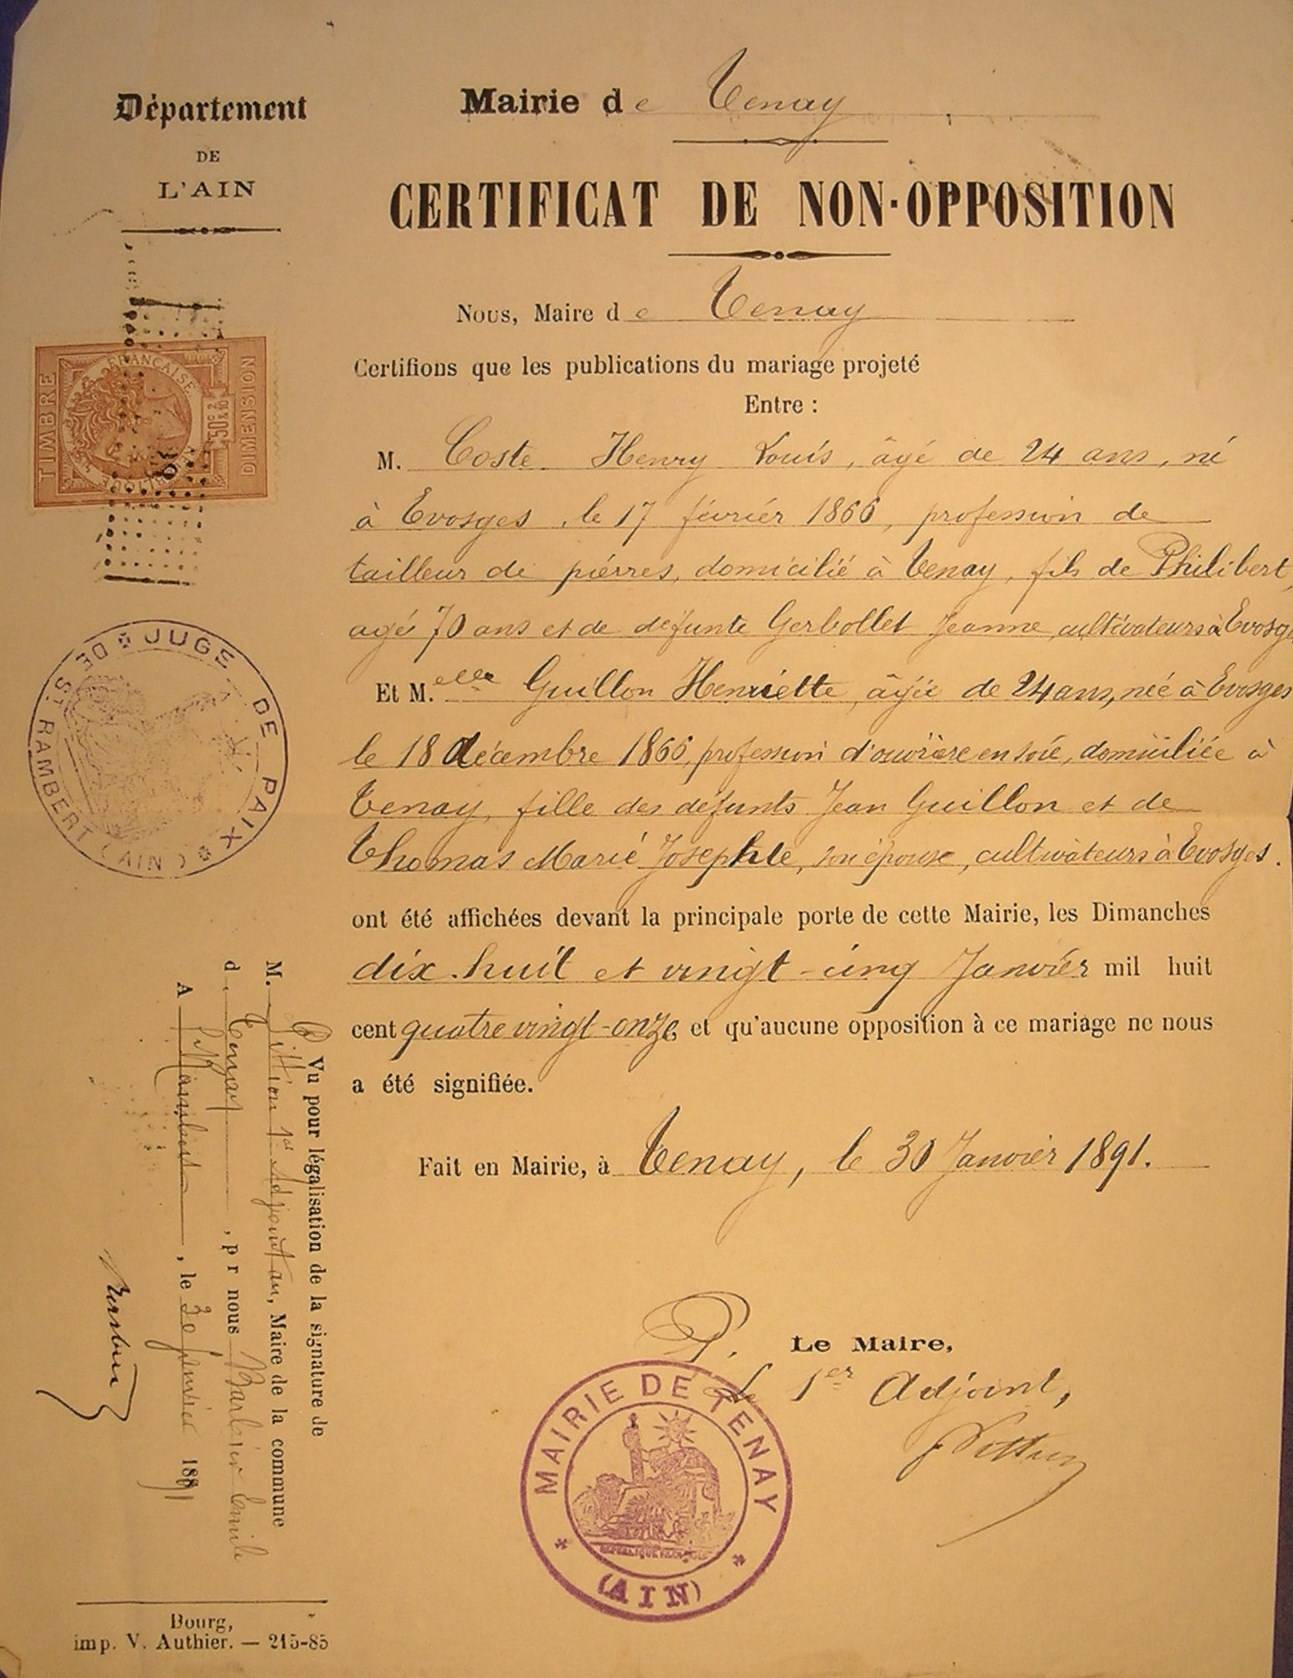 Département
DE
L'AIN
Mairie de Tenay
CERTIFICAT DE NON-OPPOSITION
Nous, Maire de Tenay
Certifions que les publications du mariage projeté
Entre :
M. Coste Henry Louis, âgé de 24 ans, né
à Evosges, le 17 février 1866, profession de
tailleur de pierres, domicilié à Tenay, fils de Philibert,
agé 70 ans et de défunte Gerbollet Jeanne cultivateurs à Evosges
Et M.elle Guillon Henriette, âgée de 24 ans, née à Evosges
le 18 décembre 1866, profession d'ouvrière en soie, domiciliée à
Tenay, fille des défunts Jean Guillon et de
Thomas Marie Josephte, son épouse, cultivateurs à Evosges.
ont été affichées devant la principale porte de cette Mairie, les Dimanches
dix-huit et vingt-cinq Janvier mil huit
cent quatre vingt-onze et qu'aucune opposition à ce mariage ne nous
a été signifiée.
Fait en Mairie, à Tenay, le 30 Janvier 1891.
P. Le Maire,
Le 1er Adjoint,
MAIRIE DE TENAY
(AIN)
TIMBRE
DIMENSION
FRANÇAISE
50c
JUGE DE PAIX
DE ST RAMBERT (AIN)
Vu pour légalisation de la signature de
M. Pittion 1er Adjoint au, Maire de la commune
de Tenay, p r nous Barbier Emile
A St Rambert, le 30 Janvier 1891
Bourg,
imp. V. Authier. — 215-85